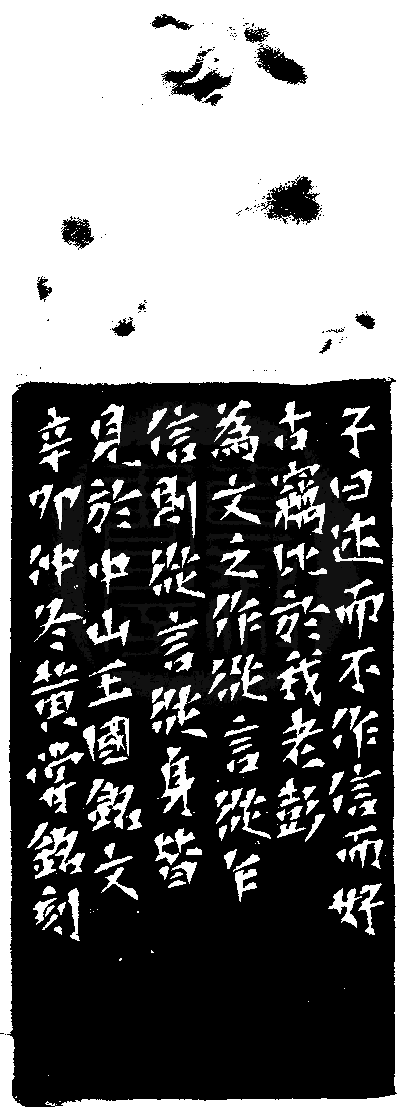 子曰述而不作信而好
古竊比於我老彭
為文之作從言從乍
信則從言從身皆
見於中山王國銘文
辛卯仲冬黃嘗銘刻